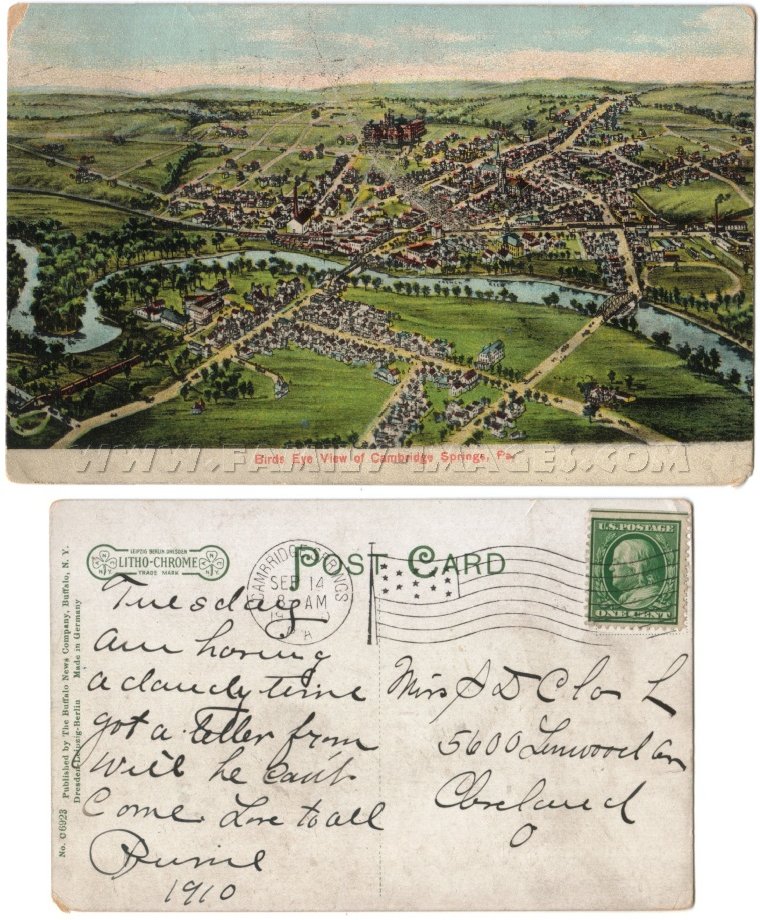 WWW.FAMILY-IMAGES.COM
Birds Eye View of Cambridge Springs, Pa.
LEIPZIG BERLIN DRESDEN
LITHO-CHROME
TRADE MARK
N Y
N Y
POST CARD
CAMBRIDGE SPRINGS
SEP 14
8 AM
PA
U.S. POSTAGE
ONE CENT
No. C6923 Published by The Buffalo News Company, Buffalo, N. Y.
Dresden-Leipzig-Berlin Made in Germany
Tuesday
am having
a dandy time
got a letter from
Will he can't
Come Love to all
1910
Miss S D
5600 Linwood Av
Cleveland
O